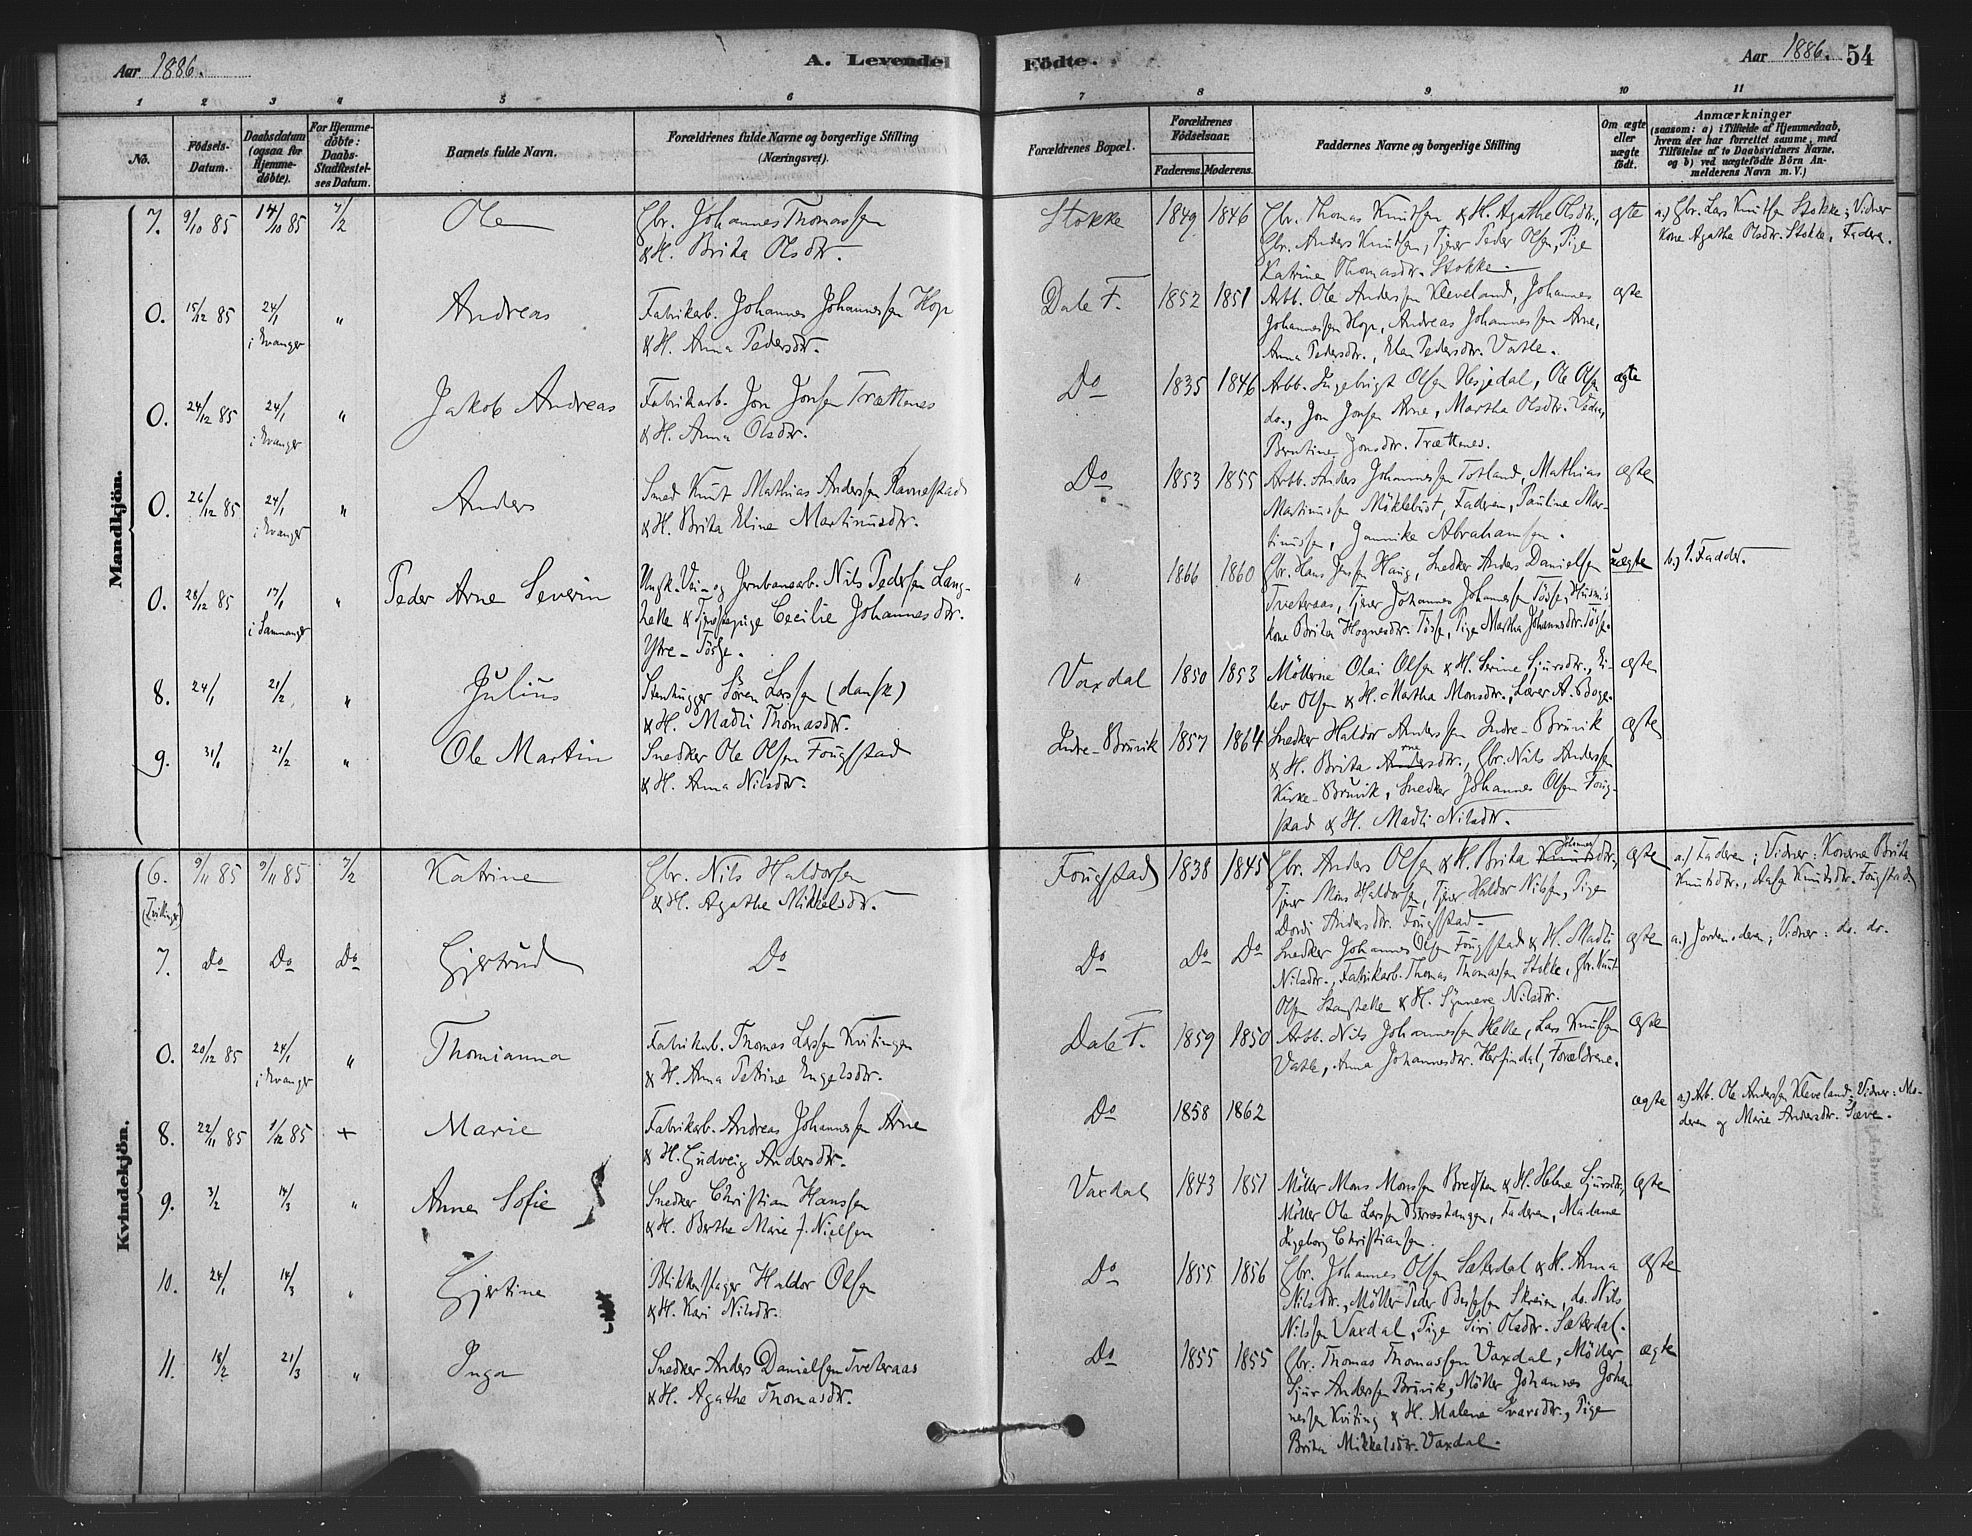 Aar 1886.
A. Levendel Födte.
Aar 1886. 54
1 2 3 4 5 6 7 8 9 10 11
No.
Födsels-Datum.
Daabsdatum (ogsaa for Hjemme-döbte).
For Hjemme-döbte: Daabs-Stadfæstel-ses Datum.
Barnets fulde Navn.
Forældrenes fulde Navne og borgerlige Stilling (Næringsvei).
Forældrenes Bopæl.
Forældrenes Födselsaar.
Faderens. Moderens.
Faddernes Navne og borgerlige Stilling
Om ægte eller uægte födt.
Anmærkninger
(saasom: a) i Tilfælde af Hjemmedaab,
hvem der har forrettet samme, med
Tilföielse af to Daabsvidners Navne,
og b) ved uægtefödte Börn An-
melderens Navn m. V.)
Mandkjön.
7. 9/10 85 14/10 85 7/2 Ole Gbr. Johannes Thomassen
& H. Brita Olsdtr.
Stokke 1849 1846 Gbr. Thomas Knudsen & H. Agathe Olsdtr.,
Gbr. Anders Knutsen, Tjener Peder Olsen, Pige
Katrina Thomasdtr. Stokke
ægte a.) Gbr. Lars Knutsen Stokke; Vidner
Kone Agathe Olsdtr. Stokke, Fadern.
0. 15/12 85 24/1 i Evanger " Andreas Fabrikarb. Johannes Johannessen Hop
& H. Anna Pedersdtr.
Dale F. 1852 1851 Arb. Ole Andersen Kleveland, Johannes
Johannessen Hop, Andreas Johannessen Arne,
Anna Pedersdtr., Elen Pedersdtr. Vatle.
ægte
0. 24/12 85 24/1 i Evanger " Jakob Andreas Fabrikarb. Jon Jonsen Trættenes
& H. Anna Olsdtr.
Do 1835 1846 Arb. Ingebrigt Olsen Hesjedal, Ole Olsen
do., Jon Jonsen Arne, Martha Olsdtr.
Berntine Jonsdtr. Trættenes.
ægte
0. 26/12 85 24/1 i Evanger " Anders Smed Knut Mathias Andersen Ravnestad
& H. Brita Eline Martinusdtr.
Do 1853 1855 Arb. Anders Johannessen Totland, Mathias
Martinussen Möklebust, Faderen, Pauline Mar-
tinussen, Jannike Abrahamsen.
ægte
0. 28/12 85 17/1 i Samnanger " Peder Arne Severin Ungk. Vei- og Jernbanearb. Nils Pedersen Lang-
helle & Tjenestepige Cecilie Johannesdtr.
Ytre-Tösse.
" 1866 1860 Gbr. Hans Jensen Haug, Snedker Anders Danielsen
Tveteraas, Tjener Johannes Johannessen Tösse, Husm.s
kone Brita Hognesdtr. Tösse, Pige Martha Johannesdtr. Tösse.
uægte b.) 1. Fadder.
8. 24/1 21/2 " Julius Stenhugger Sören Larssen (dansk)
& H. Madli Thomasdtr.
Vaxdal 1850 1853 Möllerne Olai Olsen & H. Serine Sjursdtr., Ei-
lev Olsen & H. Martha Monsdtr., Lærer A. Boge.
ægte
9. 31/1 21/2 " Ole Martin Snedker Ole Olsen Fougstad
& H. Anna Nilsdtr.
Indre-Bruvik 1857 1864 Snedker Haldor Anderssen Indre-Bruvik
& H. Brita Andersdtr., Gbr. Nils Anderssen
Kirke-Bruvik, Snedker Johannes Olsen Foug-
stad & H. Madli Nilsdtr.
ægte
Kvindekjön.
6. (Tvillinger) 9/11 85 9/11 85 7/2 Katrine Gbr. Nils Haldorsen
& H. Agathe Mikkelsdtr.
Fougstad 1838 1845 Gbr. Anders Olsen & H. Brita Knutsdtr.,
Tjener Mons Haldorsen, Tjener Haldor Nilsen, Pige
Dordi Andersdtr. Fougstad
ægte a.) Faderen; Vidner: Konerne Brita
Knutsdtr., Knutsdtr. Fougstad
7. Do Do Do Gjertrud Do
Do Do Do Snedker Johannes Olsen Fougstad & H. Madli
Nilsdtr., Fabrikarb. Thomas Thomassen Stokke, Gbr. Knut
Olsen Stanghelle & H. Synneve Nilsdtr.
ægte a.) Jordemoderen; Vidner: do. do.
0. 20/12 85 24/1 i Evanger " Thomianna Fabrikarb. Thomas Larsen Kvitingen
& H. Anna Petrine Engelsdtr.
Dale F. 1859 1850 Arb. Nils Johannessen Helle, Lars Knutsen
Vatle, Anna Johannesdtr. Herfindal, Forældrene.
ægte
8. 22/11 85 1/12 85 + Marie Fabrikarb. Andreas Johannessen Arne
& H. Gudveig Andersdtr.
Do 1858 1862 ægte a.) Arb. Ole Andersen Kleveland; Vidner: Mo-
deren og Marie Andersdtr. Sæve.
9. 3/2 14/3 " Anna Sofie Snedker Christian Hanssen
& H. Berthe Marie f. Nielsen
Vaxdal 1843 1851 Möller Mons Monssen Breisten & H. Helene Sjursdtr.,
Möller Ole Larssen Börrestangen, Faderen, Madame
Ingeborg Christiansen.
ægte
10. 24/1 14/3 " Gjertine Blikkenslager Haldor Olsen
& H. Kari Nilsdtr.
Do 1855 1856 Gbr. Johannes Olsen Sæterdal & H. Anna
Nilsdtr., Möller Peder Skreien, do. Nils
Nilssen Vaxdal, Pige Siri Olsdtr. Sæterdal.
ægte
11. 18/2 21/3 " Inga Snedker Anders Danielsen Tveteraas
& H. Agathe Thomasdtr.
Do 1855 1855 Gbr. Thomas Thomassen Vaxdal, Möller
Sjur Andersen Bruvik, Möller Johannes Johan-
nessen Kviting & H. Malene Ivarsdtr., Pige
Brita Mikkelsdtr. Vaxdal.
ægte